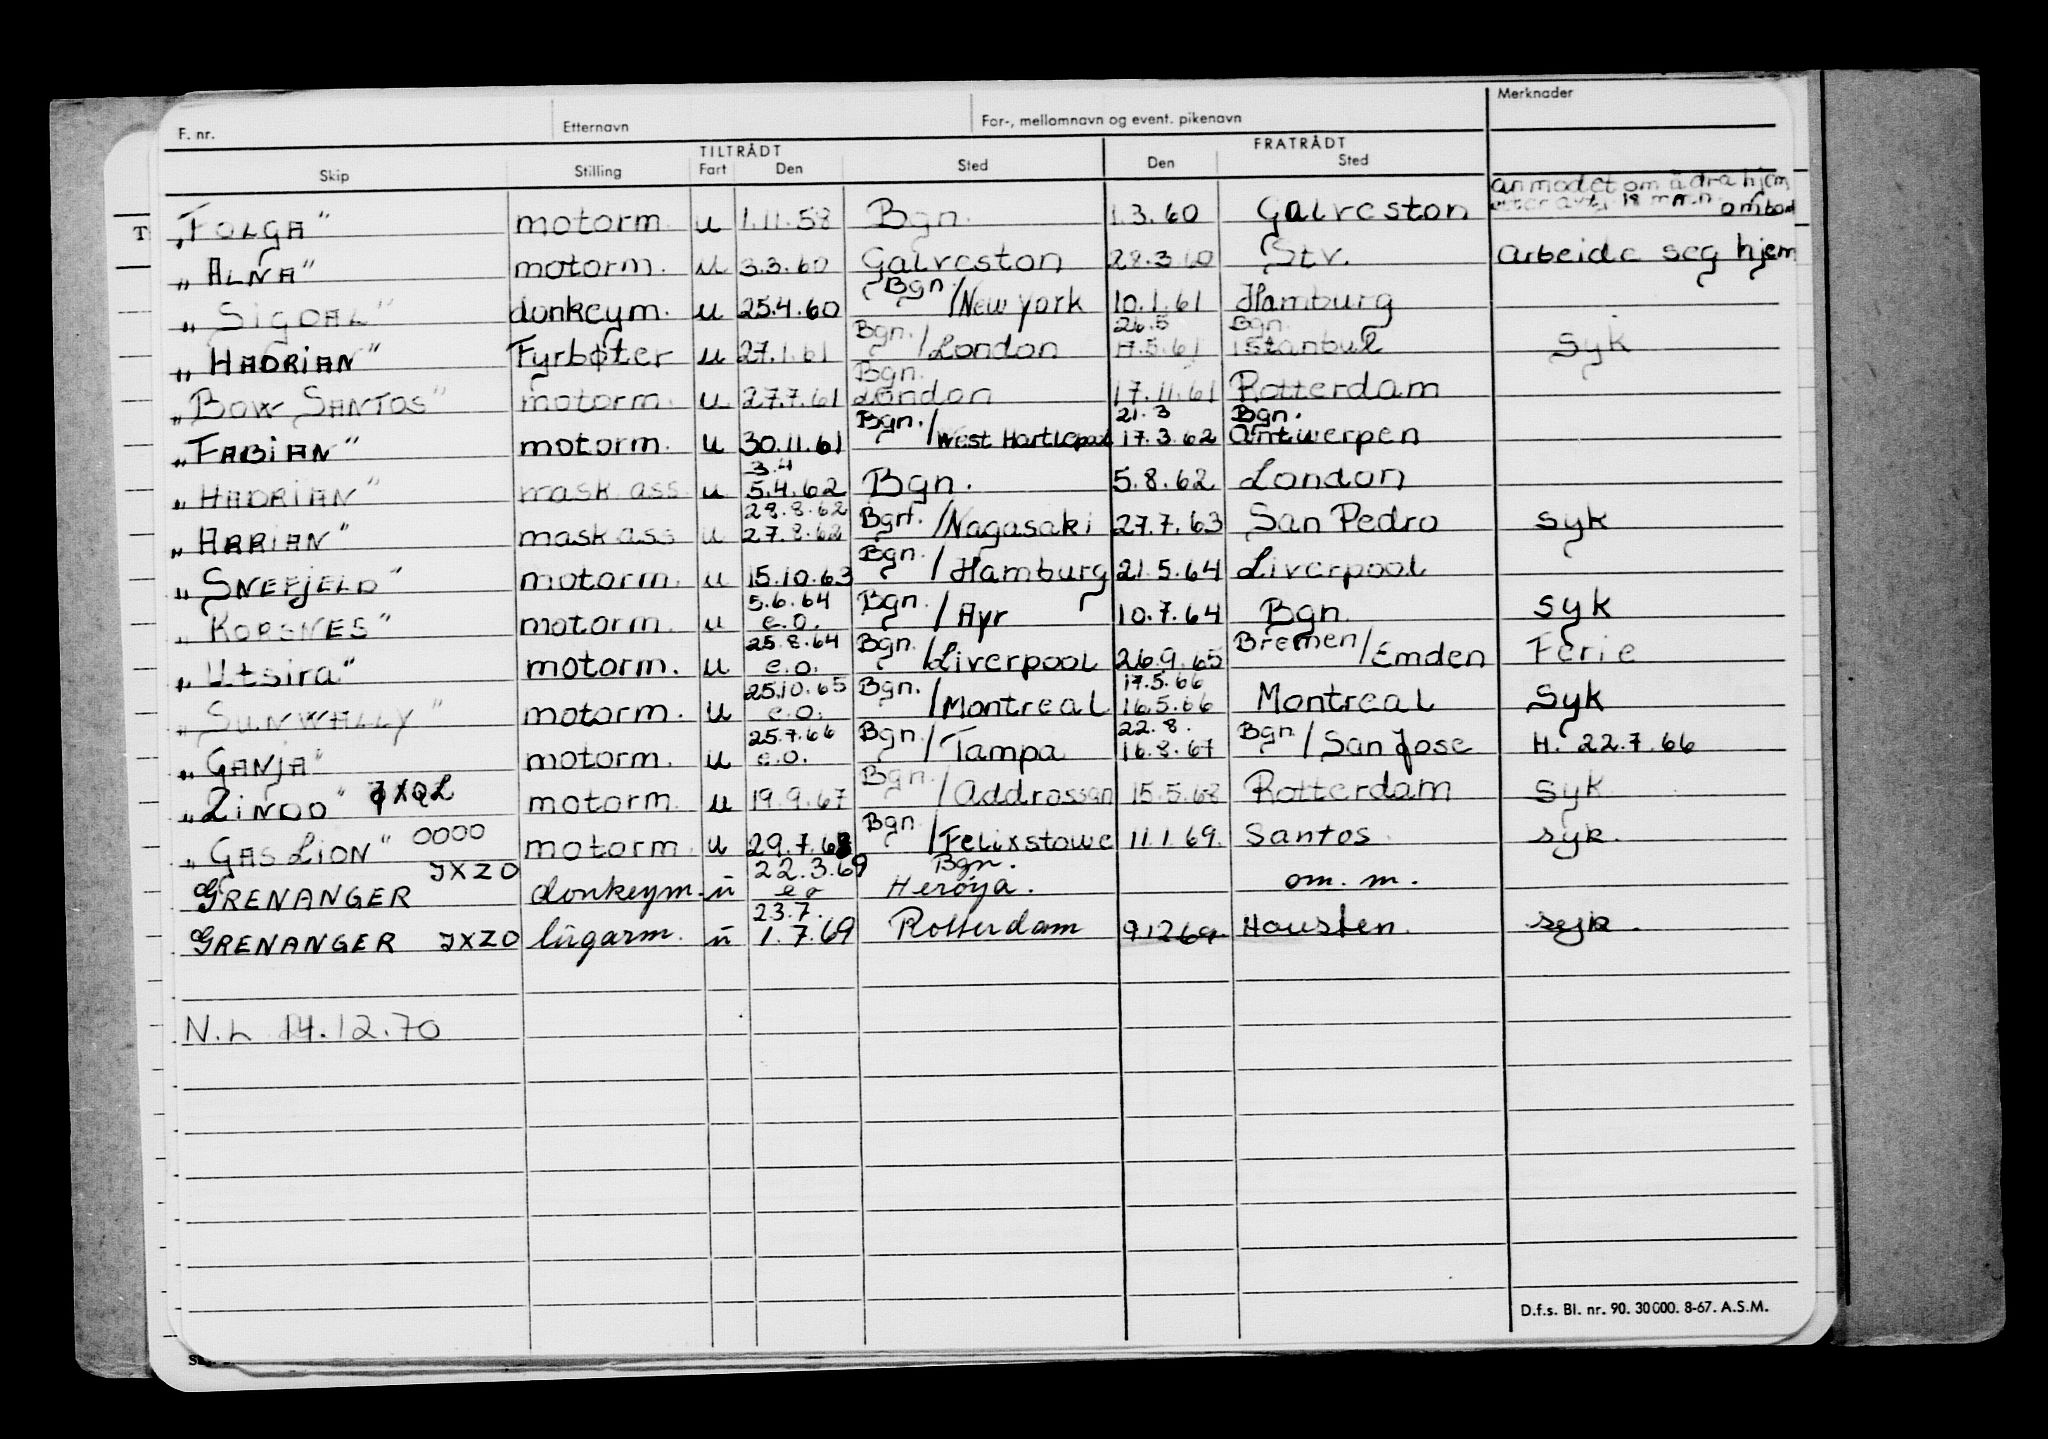 F. nr. Etternavn For-, mellomnavn og event. pikenavn Merknader
TILTRÅDT FRATRÅDT
Skip Stilling Fart Den Sted Den Sted
anmodet om å dra hjem
"FOLGA" motorm. u 1.11.58 Bgn. 1.3.60 Galveston 18 mnd ombord
"ALNA" motorm. u 3.3.60 Galveston 28.3.60 Stv. Arbeide seg hjem
"SIGDAL" donkeym. u 25.4.60 Bgn/New York 10.1.61 Hamburg
26.5 Bgn.
"HADRIAN" Fyrbøter u 27.1.61 Bgn./London 17.5.61 Istanbul Syk
"BOW SANTOS" motorm. u 27.7.61 Bgn. London 17.11.61 Rotterdam
21.3 Bgn.
"FABIAN" motorm. u 30.11.61 Bgn./West Hartlepool 17.3.62 Antwerpen
3.4
"HADRIAN" mask.ass. u 5.4.62 Bgn. 5.8.62 London
28.8.62
"ARRIAN" mask ass u 27.8.62 Bgn./Nagasaki 27.7.63 San Pedro Syk
"SNEFJELD" motorm. u 15.10.63 Bgn./Hamburg 21.5.64 Liverpool
5.6.64
"KORSNES" motorm. u e.o. Bgn./Ayr 10.7.64 Bgn. Syk
25.8.64
"Utsira" motorm. u e.o. Bgn./Liverpool 26.9.65 Bremen/Emden Ferie
25.10.65 17.5.66
"SUNWALLY" motorm. u e.o. Bgn./Montreal 16.5.66 Montreal Syk
25.7.66 22.8.
"GANJA" motorm. u e.o. Bgn./Tampa 16.8.67 Bgn/San Jose H. 22.7.66
"ZINDO" JXQL motorm. u 19.9.67 Bgn./Addrossan 15.5.68 Rotterdam Syk
"GAS LION" OOOO motorm. u 29.7.68 Bgn/Felixstowe 11.1.69. Santos. syk.
22.3.69 Bgn.
GRENANGER JXZO donkeym. u eo Herøya. om. m.
23.7.
GRENANGER JXZO lugarm. u 1.7.69 Rotterdam 9.12.69 Housten. syk.
N.L. 14.12.70
D.f.s. Bl. nr. 90. 30000. 8-67. A.S.M.